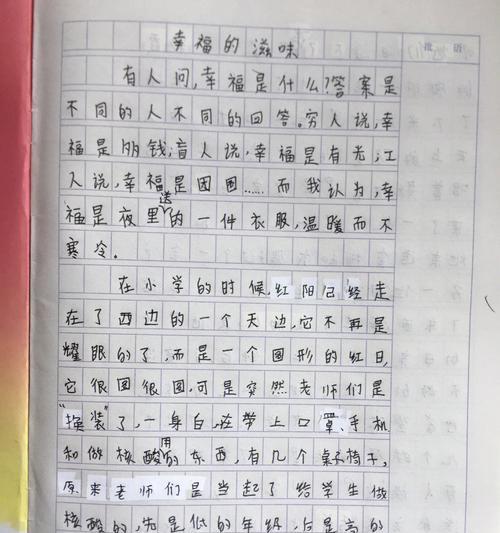 批语
幸福的滋味
有人问,幸福是什么?答案是
不同的人不同的回答。穷人说,幸
福是金钱;盲人说,幸福是有光;江
人说,幸福是团圆……而我认为,幸
福是夜里送的一件衣服,温暖而不
寒冷。
在小学的时候,红阳已经走
在了西边的一个天边,它不再是
耀眼的了,而是一个圆形的红日,
它很圆很圆,可是突然老师们是
"换装"了,一身白,在带上口罩、手机
和做核酸用的东西,有几个桌子椅子,
原来老师们是当起了给学生做
核酸的,先是低的年级,后是高的